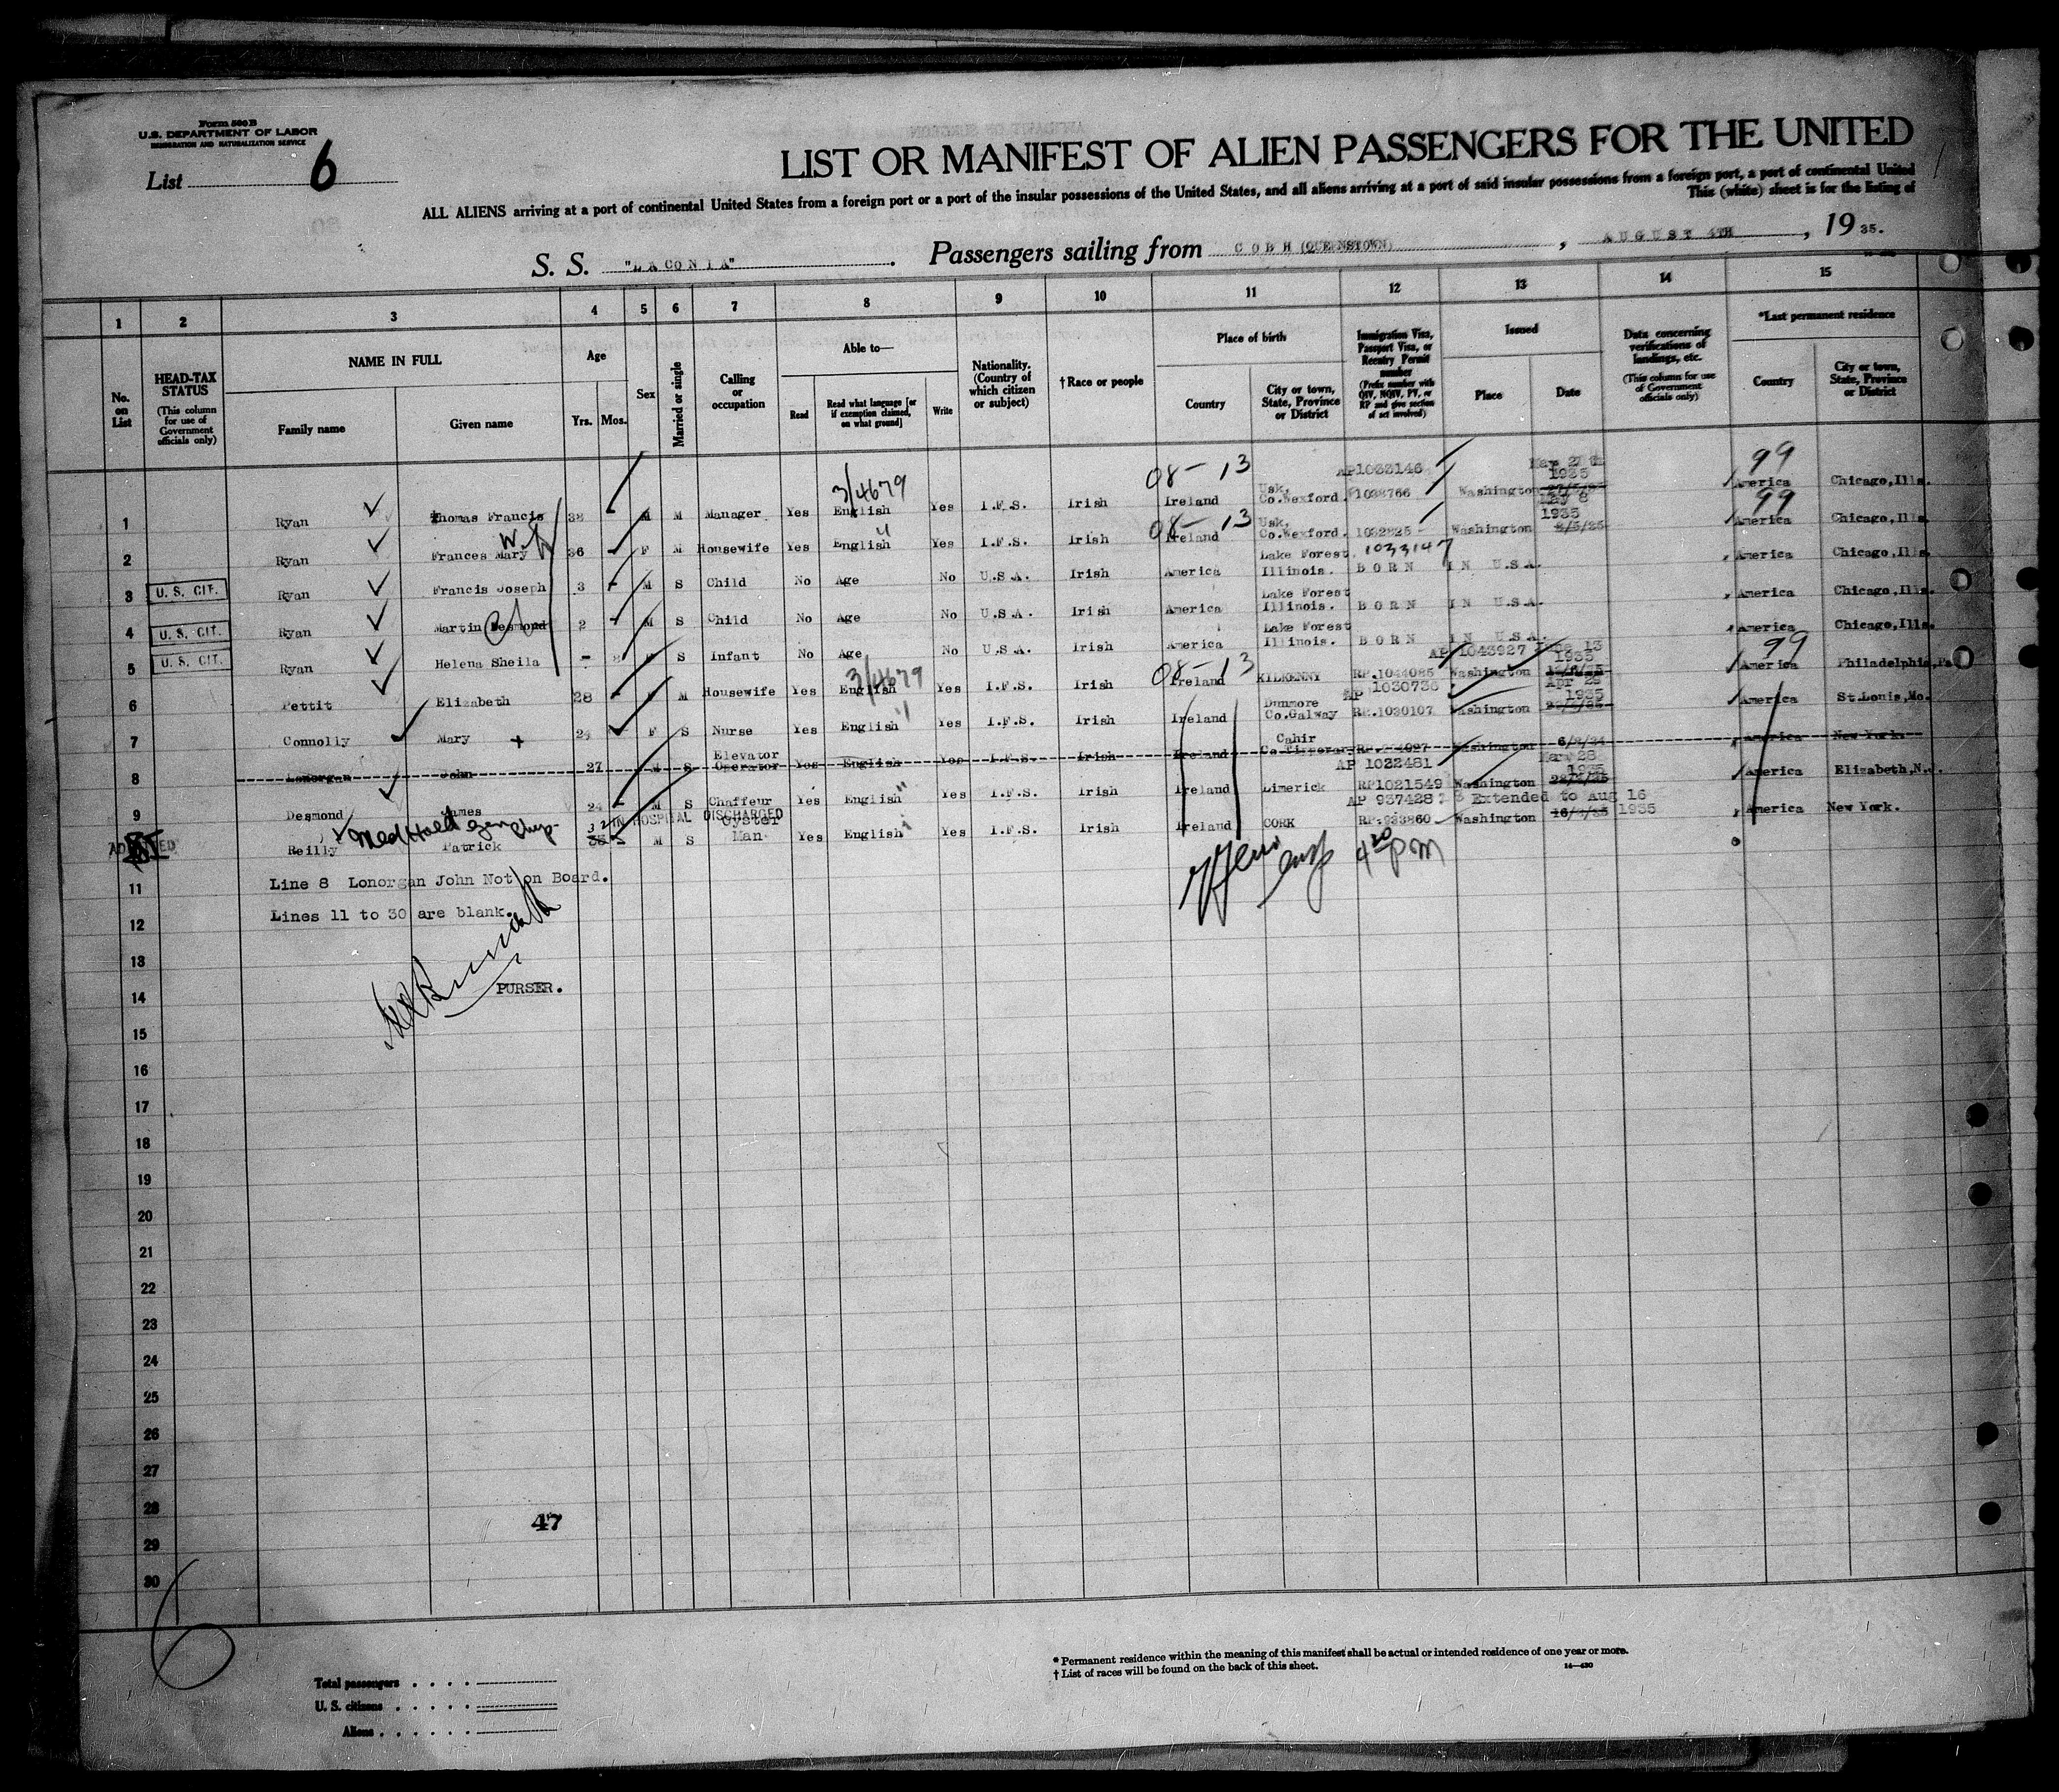 Form 500B
U.S. DEPARTMENT OF LABOR
IMMIGRATION AND NATURALIZATION SERVICE
List 6
LIST OR MANIFEST OF ALIEN PASSENGERS FOR THE UNITED
ALL ALIENS arriving at a port of continental United States from a foreign port or a port of the insular possessions of the United States, and all aliens arriving at a port of said insular possessions from a foreign port, a port of continental United
This (white) sheet is for the listing of
S. S. "LACONIA". Passengers sailing from COBH (QUEENSTOWN), AUGUST 4TH, 1935.
1 2 3 4 5 6 7 8 9 10 11 12 13 14 15
No. on List
HEAD-TAX STATUS (This column for use of Government officials only)
NAME IN FULL Family name Given name
Age Yrs. Mos.
Sex
Married or single
Calling or occupation
Able to— Read Read what language [or if exemption claimed, on what ground] Write
Nationality. (Country of which citizen or subject)
† Race or people
Place of birth Country City or town, State, Province or District
Immigration Visa, Passport Visa, or Reentry Permit number (Prefix number with QIV, NQIV, PV, or RP and give section of act involved)
Issued Place Date
Data concerning verifications of landings, etc. (This column for use of Government officials only)
*Last permanent residence Country City or town, State, Province or District
3/4679 08-13 AP1033146 1935 99
1 Ryan Thomas Francis 38 M M Manager Yes English Yes I.F.S. Irish Ireland Usk, Co.Wexford. 1028766 Washington America Chicago,Ills.
08-13 May 8 1935 99
2 Ryan Frances Mary 36 F M Housewife Yes English Yes I.F.S. Irish Ireland Usk, Co.Wexford. 1032825 Washington 8/5/35 America Chicago,Ills.
1033147
3 U. S. CIT. Ryan Francis Joseph 3 - M S Child No Age No U.S.A. Irish America Lake Forest Illinois. BORN IN U.S.A. America Chicago,Ills.
4 U. S. CIT. Ryan Martin Desmond 2 - M S Child No Age No U.S.A. Irish America Lake Forest Illinois. BORN IN U.S.A. America Chicago,Ills.
5 U. S. CIT. Ryan Helena Sheila - F S Infant No Age No U.S.A. Irish America Lake Forest Illinois. BORN IN U.S.A. America Chicago,Ills.
3/4679 08-13 AP 1043927 13 1935 99
6 Pettit Elizabeth 28 - F M Housewife Yes English Yes I.F.S. Irish Ireland KILKENNY RP.1044085 Washington America Philadelphia,Pa
AP 1030736 Apr 29 1935
7 Connolly Mary + 24 F S Nurse Yes English Yes I.F.S. Irish Ireland Dunmore Co.Galway RP.1030107 Washington America St.Louis,Mo.
8 Lonorgan John 27 M S Elevator Operator Yes English Yes I.F.S. Irish Ireland Cahir Co.Tipperary Washington America New York.
AP 1032481 Mar 28 1935
9 Desmond James 24 - M S Chaffeur Yes English Yes I.F.S. Irish Ireland Limerick RP1021549 Washington America Elizabeth,N.J.
IN HOSPITAL DISCHARGED AP 937428 Extended to Aug 16 1935
ADMITTED Reilly Patrick 32 M S Oyster Man Yes English Yes I.F.S. Irish Ireland CORK RP.933860 Washington America New York.
Med Hold
11 Line 8 Lonorgan John Not on Board.
12 Lines 11 to 30 are blank.
4 20 pm
13
14 PURSER.
15
16
17
18
19
20
21
22
23
24
25
26
27
28
47
29
30
6
Total passengers
U. S. citizens
Aliens
* Permanent residence within the meaning of this manifest shall be actual or intended residence of one year or more.
† List of races will be found on the back of this sheet.
14—430